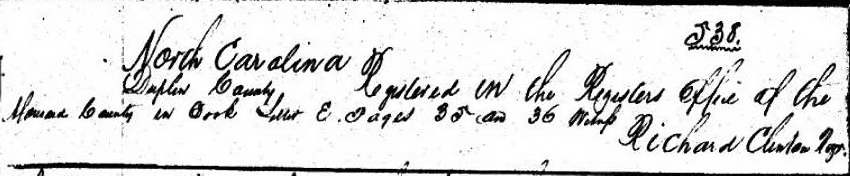 538.
North Carolina
Duplin County Registered in the Registers Office of the
County in Book E. Pages 35 and 36
Richard Clinton Regr.